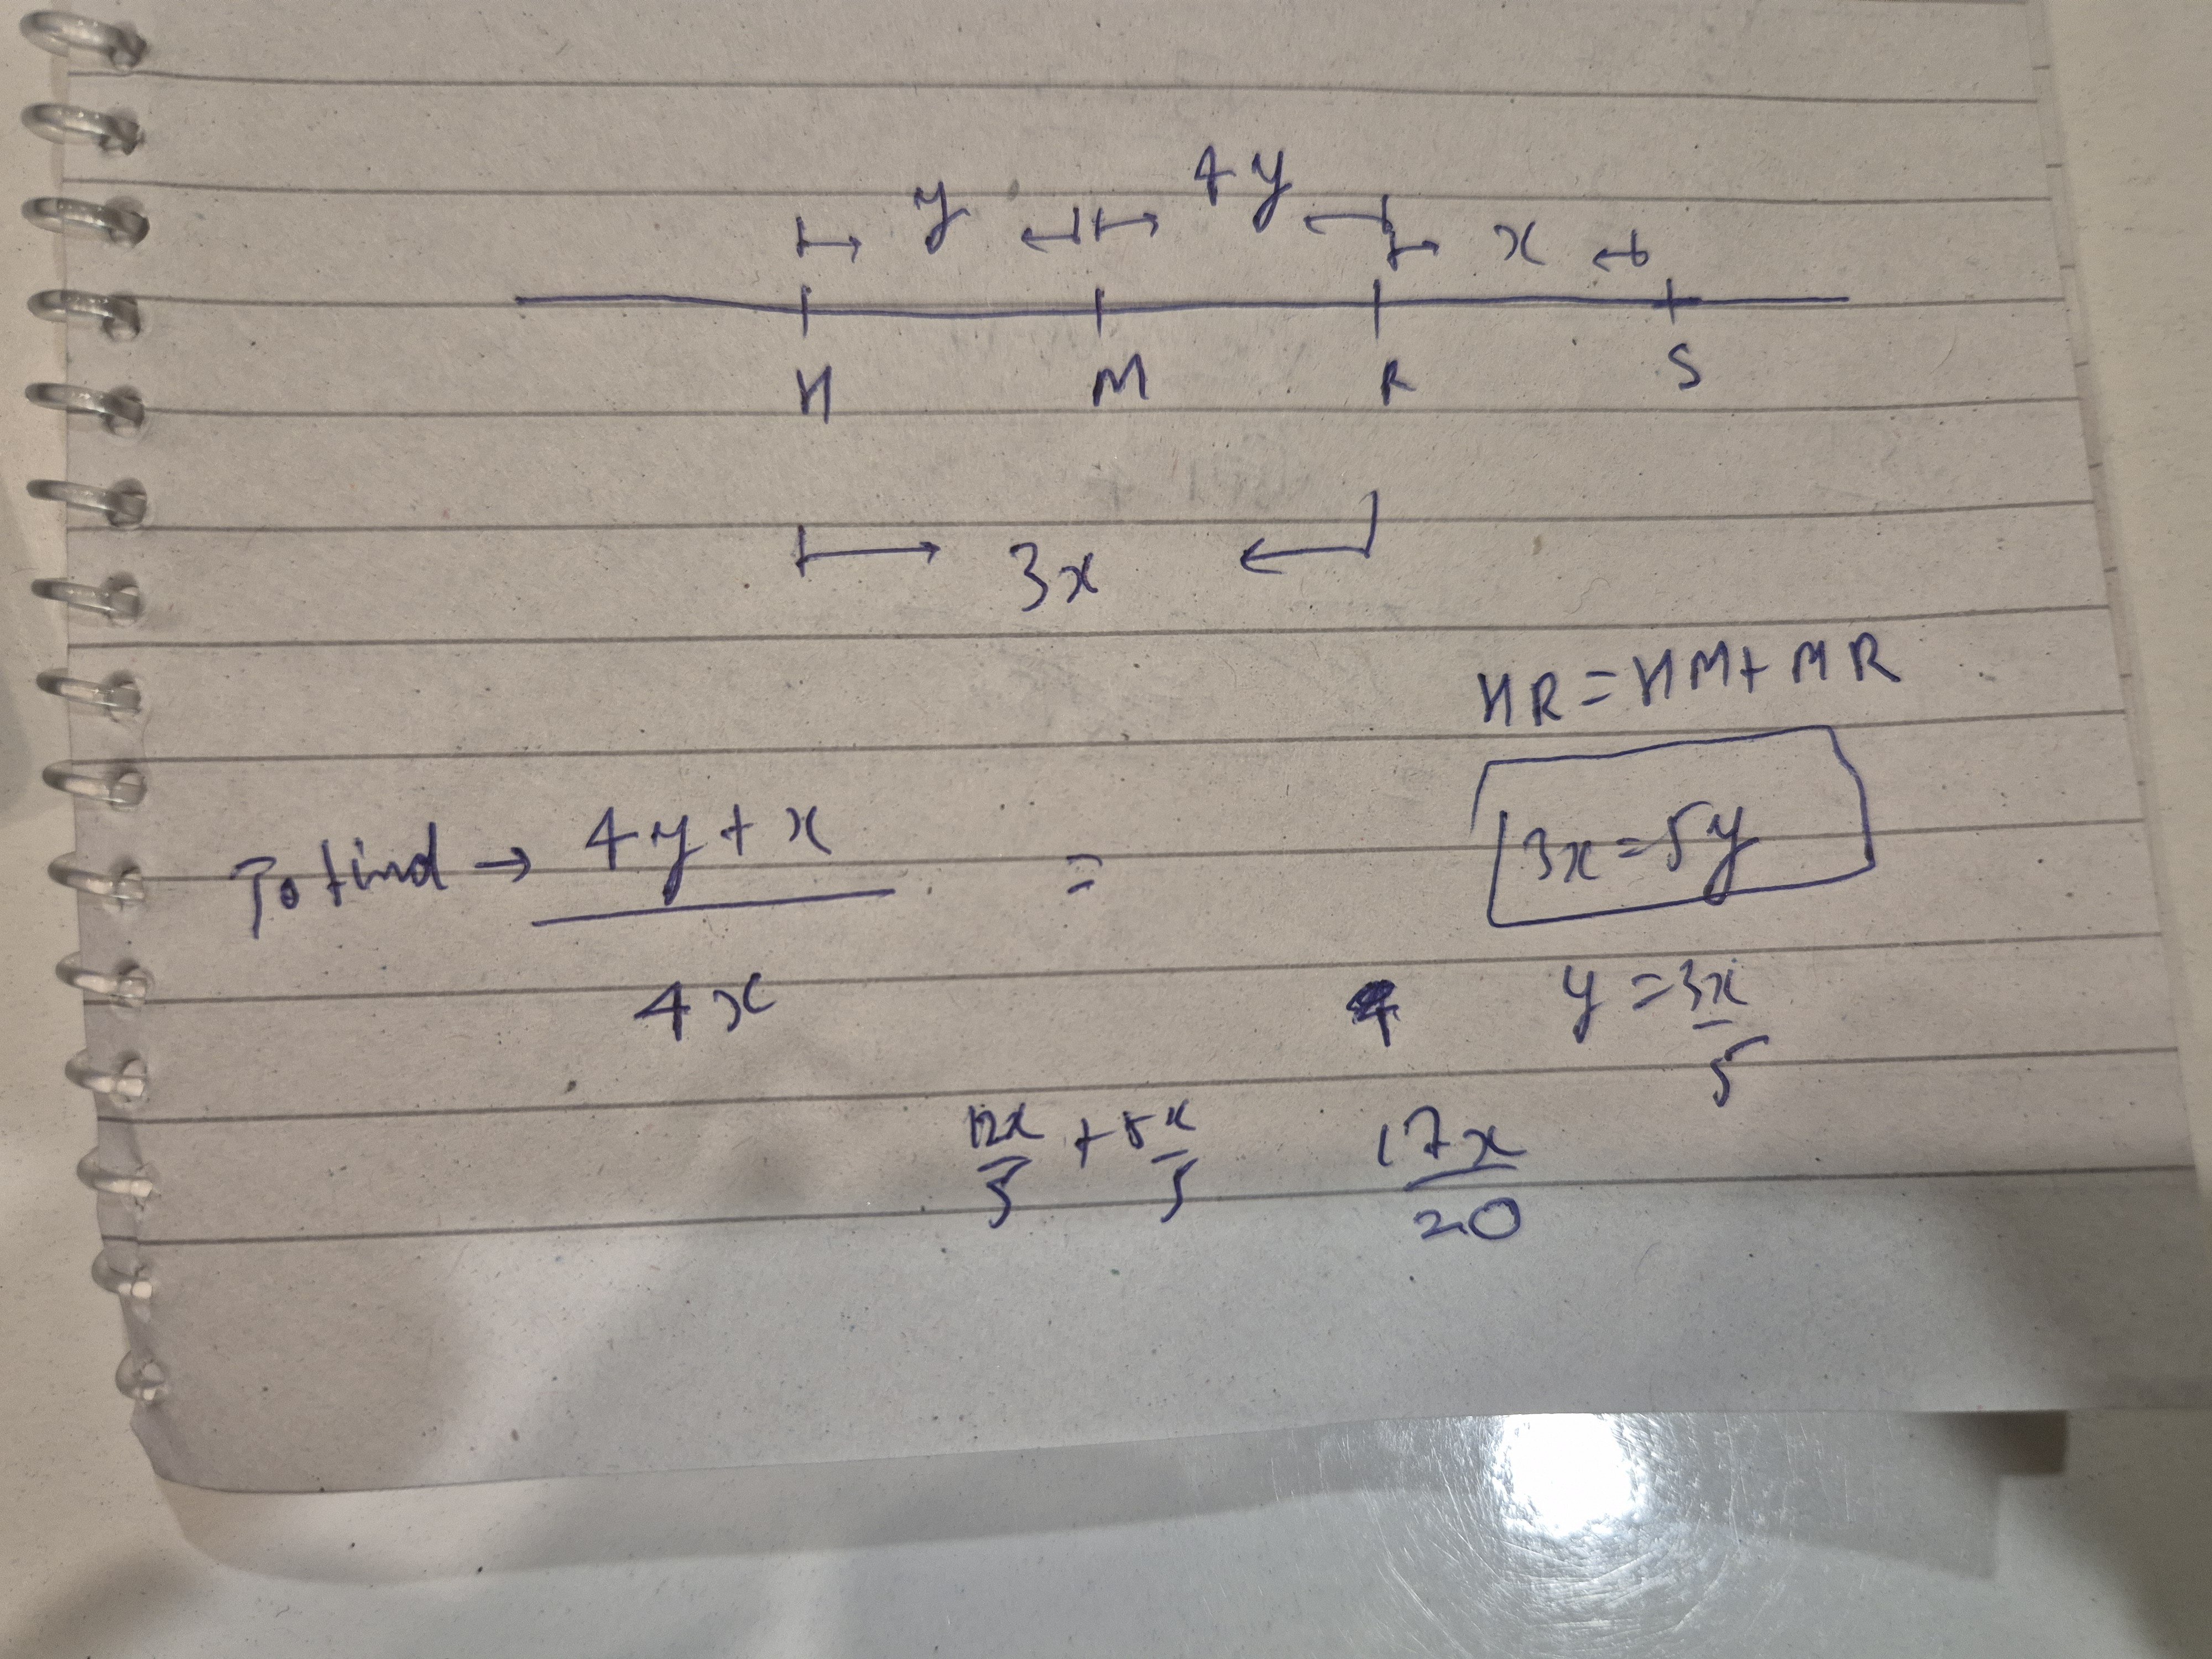 y 4y x
H M R S
3x
HR = HM + MR
To find → 4y + x / 4x =
3x = 5y
y = 3x/5
12x/5 + 5x/5 17x/20